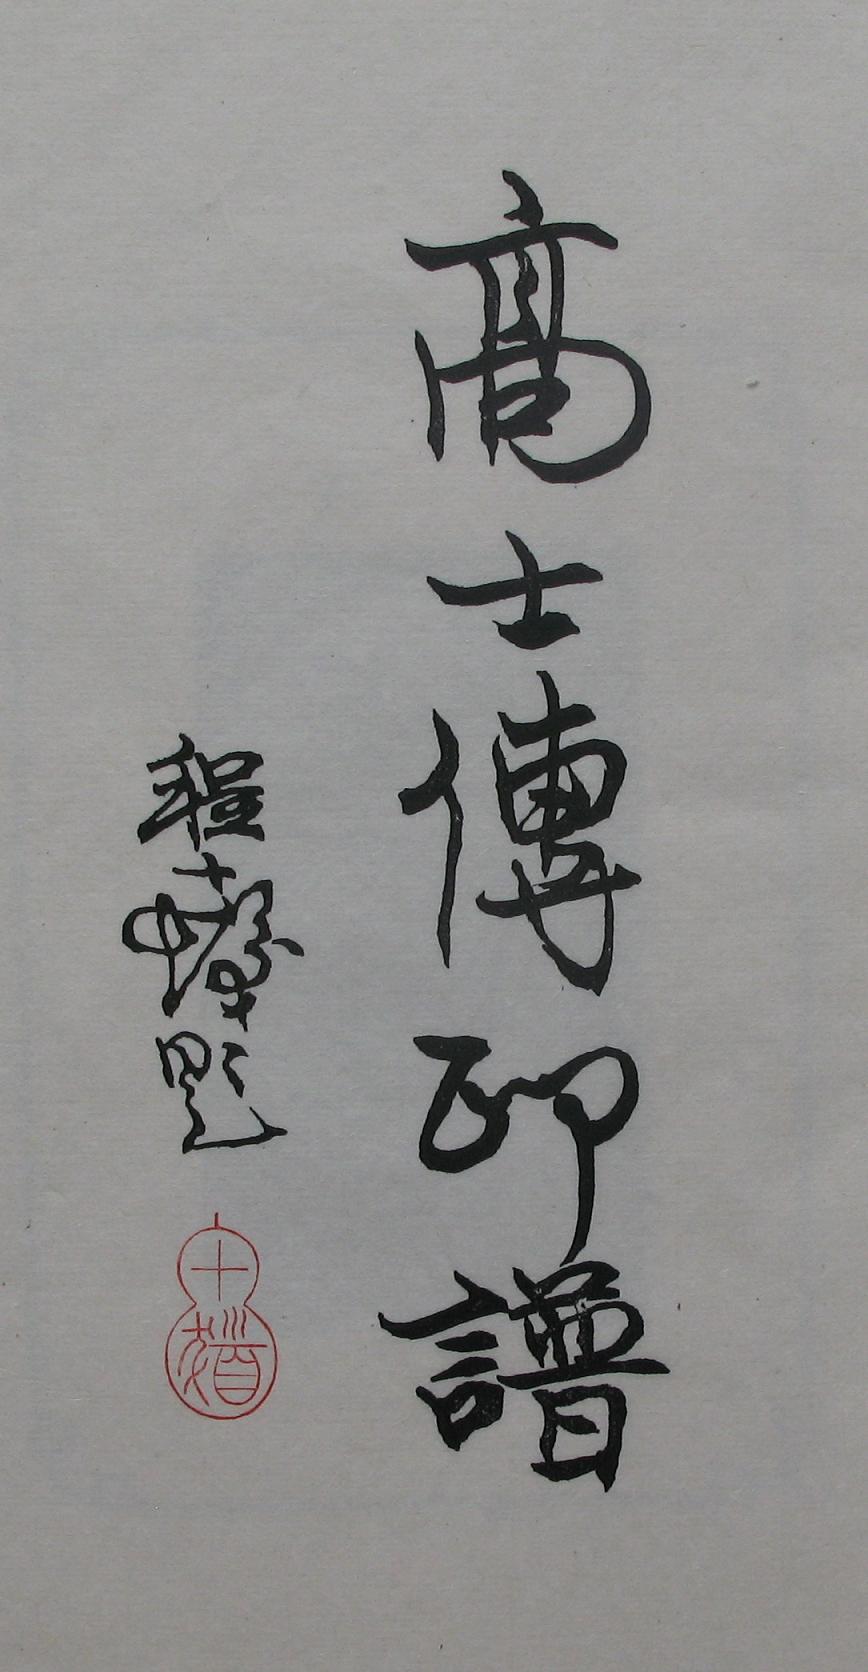 高士傳印譜
程十髮題
十髮